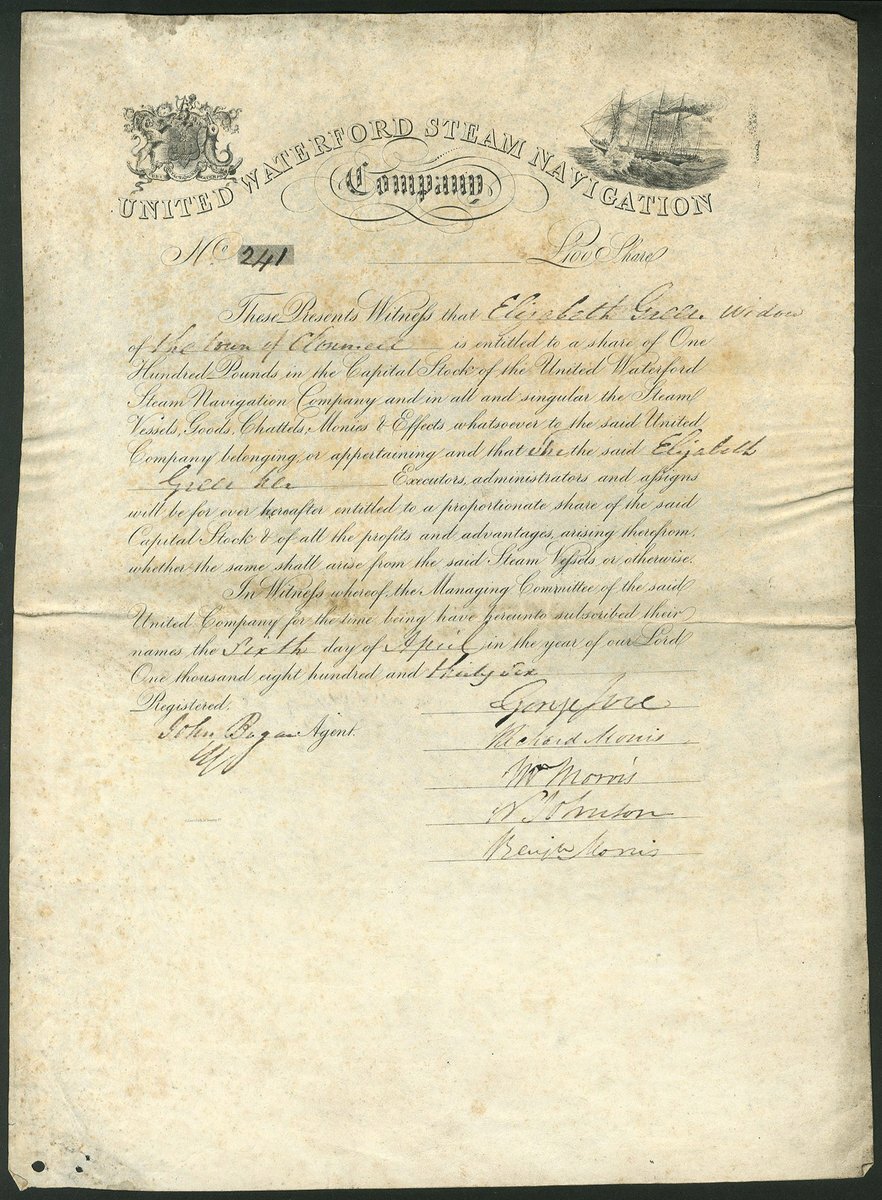 UNITED WATERFORD STEAM NAVIGATION
Company
No 241 £100 Share
These Presents Witness that Elizabeth Greer Widow
of the town of Clonmell is entitled to a share of One
Hundred Pounds, in the Capital Stock of the United Waterford
Steam Navigation Company and in all and singular the Steam
Vessels, Goods, Chattels, Monies & Effects whatsoever to the said United
Company belonging or appertaining and that she the said Elizabeth
Greer her Executors, administrators and assigns
will be for ever hereafter entitled to a proportionate share of the said
Capital Stock & of all the profits and advantages, arising therefrom,
whether the same shall arise from the said Steam Vessels or otherwise.
In Witness whereof, the Managing Committee of the said
United Company for the time being have hereunto subscribed their
names the Sixth day of April in the year of our Lord
One thousand eight hundred and thirty six
Registered.
John Bogan Agent.
George
Richard Morris
Wm Morris
N Johnson
Benjn Morris